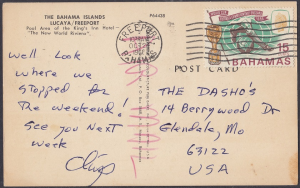 THE BAHAMA ISLANDS
LUCAYA/FREEPORT
Pool Area of the King's Inn Hotel—
"The New World Riviera".
PA4428
FREEPORT
BAHAMAS
15
BAHAMAS
POST CARD
Well. Look
where we
stopped for
The weekend!
See you Next
week
Chip
THE DASHO'S
14 Berrywood Dr
Glendale, Mo
63122
USA